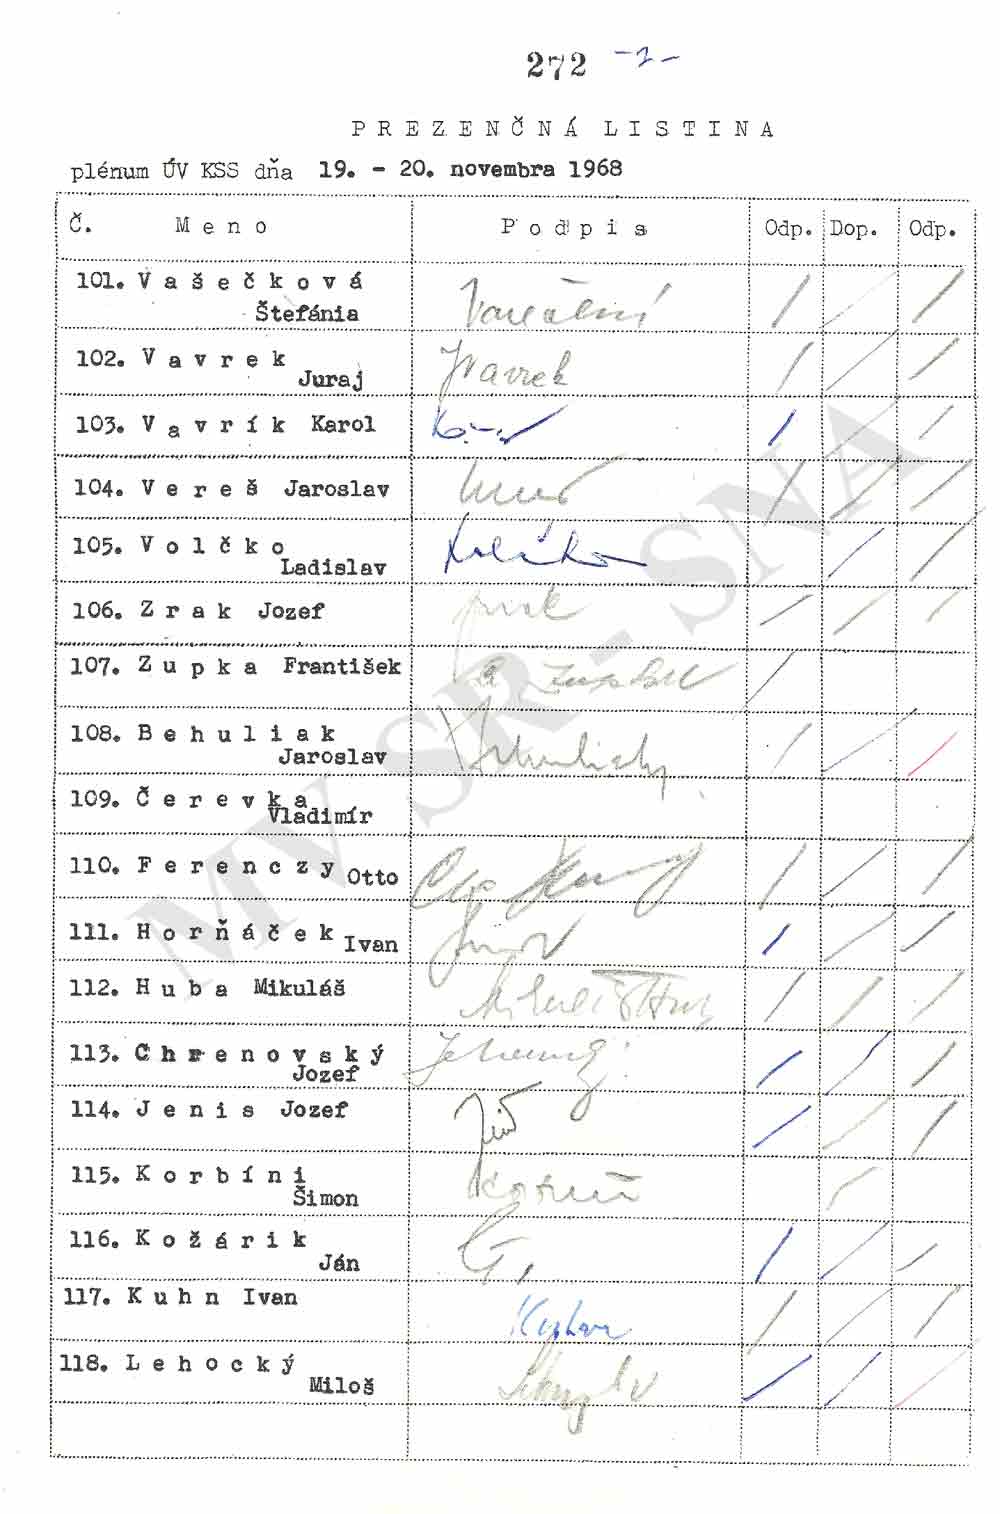 272 -7-
PREZENČNÁ LISTINA
plénum ÚV KSS dňa 19. - 20. novembra 1968
Č. Meno Podpis Odp. Dop. Odp.
101. Vašečková
Štefánia
102. Vavrek
Juraj JVavrek
103. Vavrík Karol
104. Vereš Jaroslav
105. Volčko
Ladislav
106. Zrak Jozef
107. Zupka František
108. Behuliak
Jaroslav
109. Čerevka
Vladimír
110. Ferenczy Otto
111. Horňáček Ivan
112. Huba Mikuláš
113. Chrenovský
Jozef
114. Jenis Jozef
115. Korbíni
Šimon
116. Kožárik
Ján
117. Kuhn Ivan
118. Lehocký
Miloš
MV SR - SNA